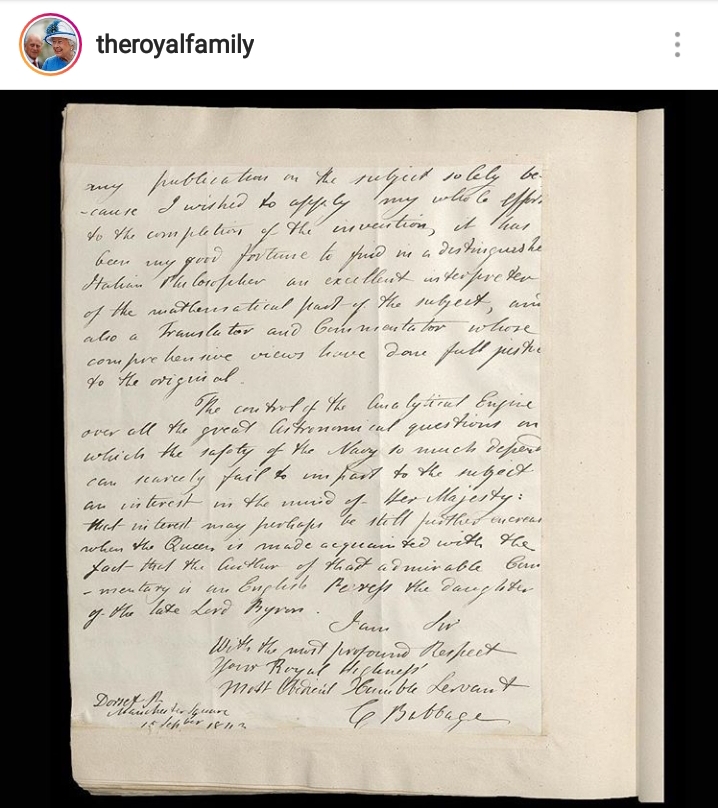 theroyalfamily
any publication on the subject solely be-
-cause I wished to apply my whole effor
to the completion of the invention, it has
been my good fortune to find in a distinguishe
Italian Philosopher an excellent interpreter
of the mathematical part of the subject, and
also a Translator and Commentator whose
comprehensive views have done full justic
to the original.
The control of the Analytical Engine
over all the great Astronomical questions on
which the safety of the Navy so much depend
can scarcely fail to impart to the subject
an interest in the mind of Her Majesty:
that interest may perhaps be still further increas
when the Queen is made acquainted with the
fact that the Author of that admirable Com
-mentary is an English Peeress the daughter
of the late Lord Byron.
I am Sir
With the most profound Respect
Your Royal Highness'
Most Obedient Humble Servant
C Babbage
Dorset St.
Manchester Square
1843